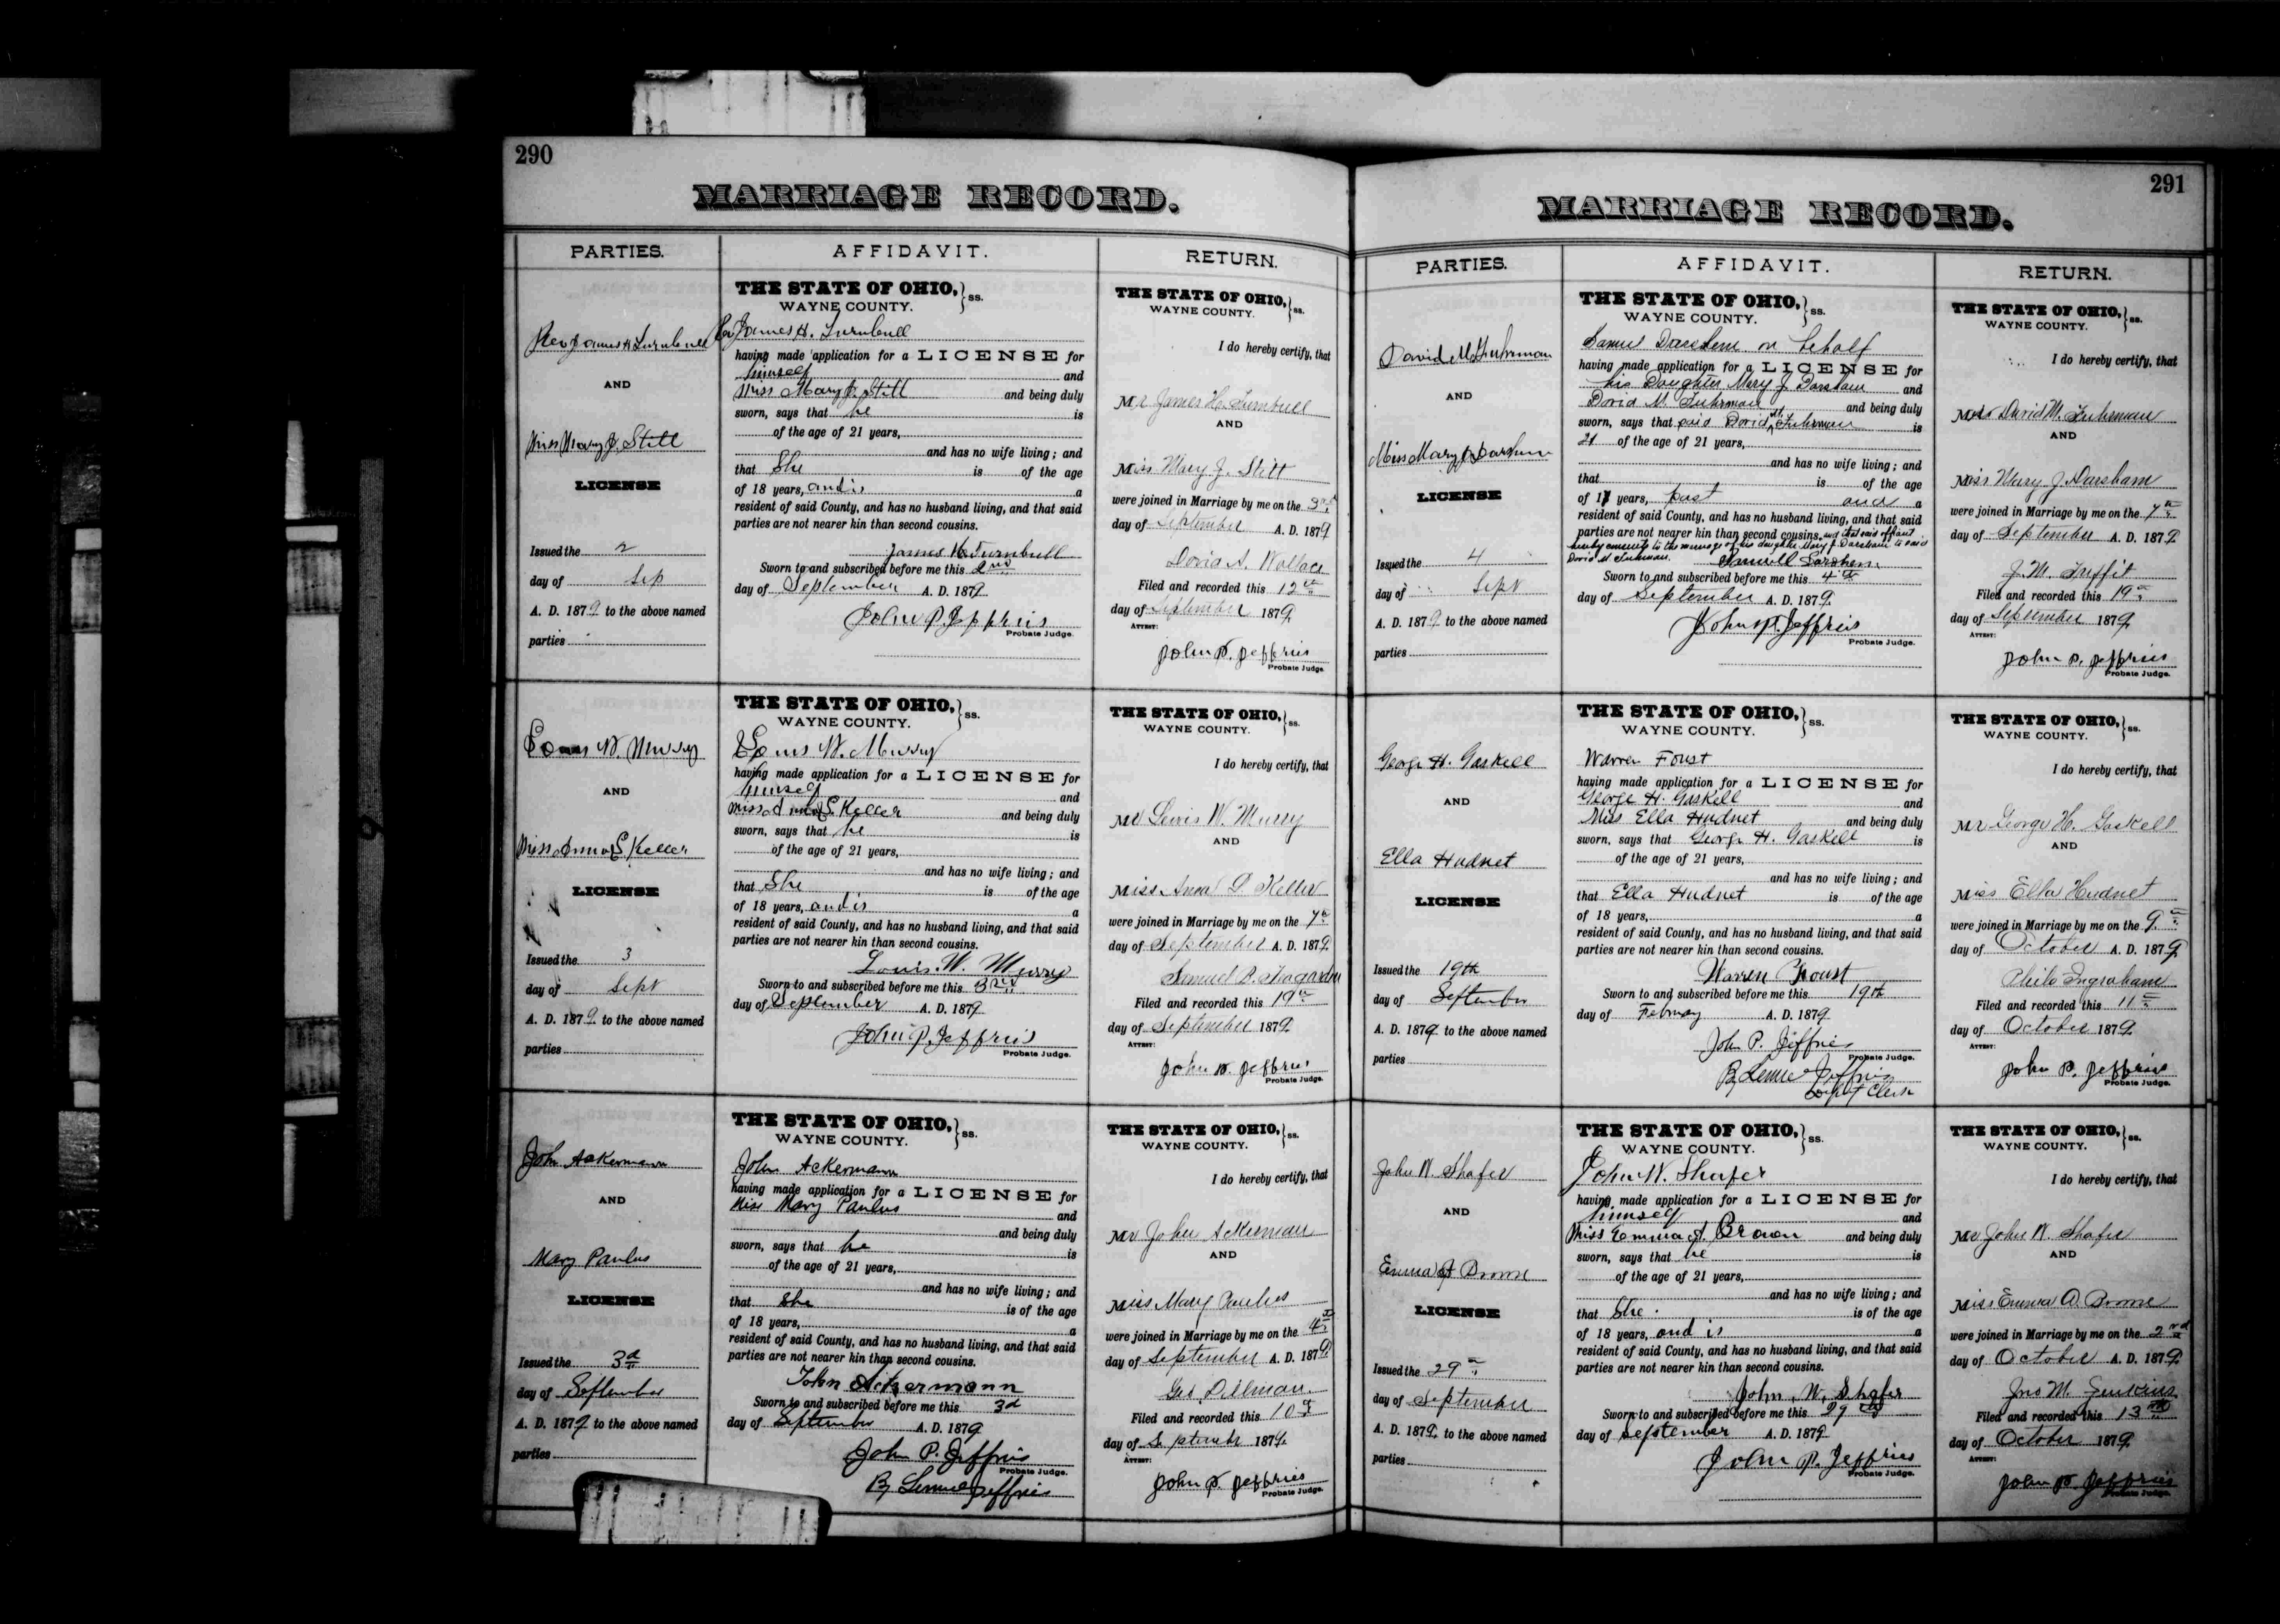 290
MARRIAGE RECORD.
PARTIES.
AFFIDAVIT.
RETURN.
Rev James H Turnbull
AND
Miss Mary J. Stitt
LICENSE
Issued the 2
day of Sep
A. D. 1879 to the above named
parties
THE STATE OF OHIO, } ss.
WAYNE COUNTY.
Rev James H. Turnbull
having made application for a LICENSE for
himself and
Miss Mary J. Stitt and being duly
sworn, says that he is
of the age of 21 years,
and has no wife living; and
that She is of the age
of 18 years, and is a
resident of said County, and has no husband living, and that said
parties are not nearer kin than second cousins.
James H. Turnbull
Sworn to and subscribed before me this 2nd
day of September A. D. 1879
John P. Jeffries
Probate Judge.
THE STATE OF OHIO, } ss.
WAYNE COUNTY.
I do hereby certify, that
Mr James H. Turnbull
AND
Miss Mary J. Stitt
were joined in Marriage by me on the 3rd
day of September A. D. 1879
David A. Wallace
Filed and recorded this 12th
day of September 1879
ATTEST:
John P. Jeffries
Probate Judge.
Louis W. Murry
AND
Miss Anna Keller
LICENSE
Issued the 3
day of Sept
A. D. 1879 to the above named
parties
THE STATE OF OHIO, } ss.
WAYNE COUNTY.
Louis W. Murry
having made application for a LICENSE for
himself and
Miss Anna Keller and being duly
sworn, says that he is
of the age of 21 years,
and has no wife living; and
that She is of the age
of 18 years, and is a
resident of said County, and has no husband living, and that said
parties are not nearer kin than second cousins.
Louis. W. Murry
Sworn to and subscribed before me this 3rd
day of September A. D. 1879
John P. Jeffries
Probate Judge.
THE STATE OF OHIO, } ss.
WAYNE COUNTY.
I do hereby certify, that
Mr Lewis W. Murry
AND
Miss Anna Keller
were joined in Marriage by me on the 7th
day of September A. D. 1879
Samuel
Filed and recorded this 19th
day of September 1879
ATTEST:
John P. Jeffries
Probate Judge.
John Ackermann
AND
Mary Paulus
LICENSE
Issued the 3d
day of September
A. D. 1879 to the above named
parties
THE STATE OF OHIO, } ss.
WAYNE COUNTY.
John Ackermann
having made application for a LICENSE for
Miss Mary Paulus and
and being duly
sworn, says that he is
of the age of 21 years,
and has no wife living; and
that She is of the age
of 18 years, a
resident of said County, and has no husband living, and that said
parties are not nearer kin than second cousins.
John Ackermann
Sworn to and subscribed before me this 3d
day of September A. D. 1879
John P. Jeffries
Probate Judge.
By Lemuel Jeffries
THE STATE OF OHIO, } ss.
WAYNE COUNTY.
I do hereby certify, that
Mr John Ackerman
AND
Miss Mary Paulus
were joined in Marriage by me on the 4th
day of September A. D. 1879
Geo. Dillman
Filed and recorded this 10th
day of Septemb 1879.
ATTEST:
John P. Jeffries
Probate Judge.
291
MARRIAGE RECORD.
PARTIES.
AFFIDAVIT.
RETURN.
David M. Fuhrman
AND
Miss Mary J. Darsham
LICENSE
Issued the 4
day of Sept
A. D. 1879 to the above named
parties
THE STATE OF OHIO, } ss.
WAYNE COUNTY.
Samuel on behalf
having made application for a LICENSE for
his Daughter Mary J. Darsham and
David M. Fuhrman and being duly
sworn, says that said David M. Fuhrman is
21 of the age of 21 years,
and has no wife living; and
that is of the age
of years, past and a
resident of said County, and has no husband living, and that said
parties are not nearer kin than second cousins, and that said affiant
hereby consents to the marriage of his daughter Mary J. Darsham to said
David M. Fuhrman.
Sworn to and subscribed before me this 4th
day of September A. D. 1879.
John P. Jeffries
Probate Judge.
THE STATE OF OHIO, } ss.
WAYNE COUNTY.
I do hereby certify, that
David M. Fuhrman
AND
Miss Mary J. Darsham
were joined in Marriage by me on the 7th
day of September A. D. 1879
J. M.
Filed and recorded this 19th
day of September 1879
ATTEST:
John P. Jeffries
Probate Judge.
George H. Gaskell
AND
Ella Hudnet
LICENSE
Issued the 19th
day of September
A. D. 1879 to the above named
parties
THE STATE OF OHIO, } ss.
WAYNE COUNTY.
Warren Foust
having made application for a LICENSE for
George H. Gaskell and
Miss Ella Hudnet and being duly
sworn, says that George H. Gaskell is
of the age of 21 years,
and has no wife living; and
that Ella Hudnet is of the age
of 18 years, a
resident of said County, and has no husband living, and that said
parties are not nearer kin than second cousins.
Warren Foust
Sworn to and subscribed before me this 19th
day of A. D. 1879
John P. Jeffries
Probate Judge.
By Lemuel Jeffries
Deputy Clerk
THE STATE OF OHIO, } ss.
WAYNE COUNTY.
I do hereby certify, that
Mr George H. Gaskell
AND
Miss Ella Hudnet
were joined in Marriage by me on the 9th
day of October A. D. 1879
Philo Ingraham
Filed and recorded this 11th
day of October 1879
ATTEST:
John P. Jeffries
Probate Judge.
John W. Shafer
AND
Emma A Brown
LICENSE
Issued the 29th
day of September
A. D. 1879. to the above named
parties
THE STATE OF OHIO, } ss.
WAYNE COUNTY.
John W. Shafer
having made application for a LICENSE for
himself and
Miss Emma A. Brown and being duly
sworn, says that he is
of the age of 21 years,
and has no wife living; and
that She is of the age
of 18 years, and is a
resident of said County, and has no husband living, and that said
parties are not nearer kin than second cousins.
John W. Shafer
Sworn to and subscribed before me this 29
day of September A. D. 1879
John P. Jeffries
Probate Judge.
THE STATE OF OHIO, } ss.
WAYNE COUNTY.
I do hereby certify, that
Mr John W. Shafer
AND
Miss Emma A. Brown
were joined in Marriage by me on the 2nd
day of October A. D. 1879
Jno M. Jenkins
Filed and recorded this 13th
day of October 1879
ATTEST:
John P. Jeffries
Probate Judge.